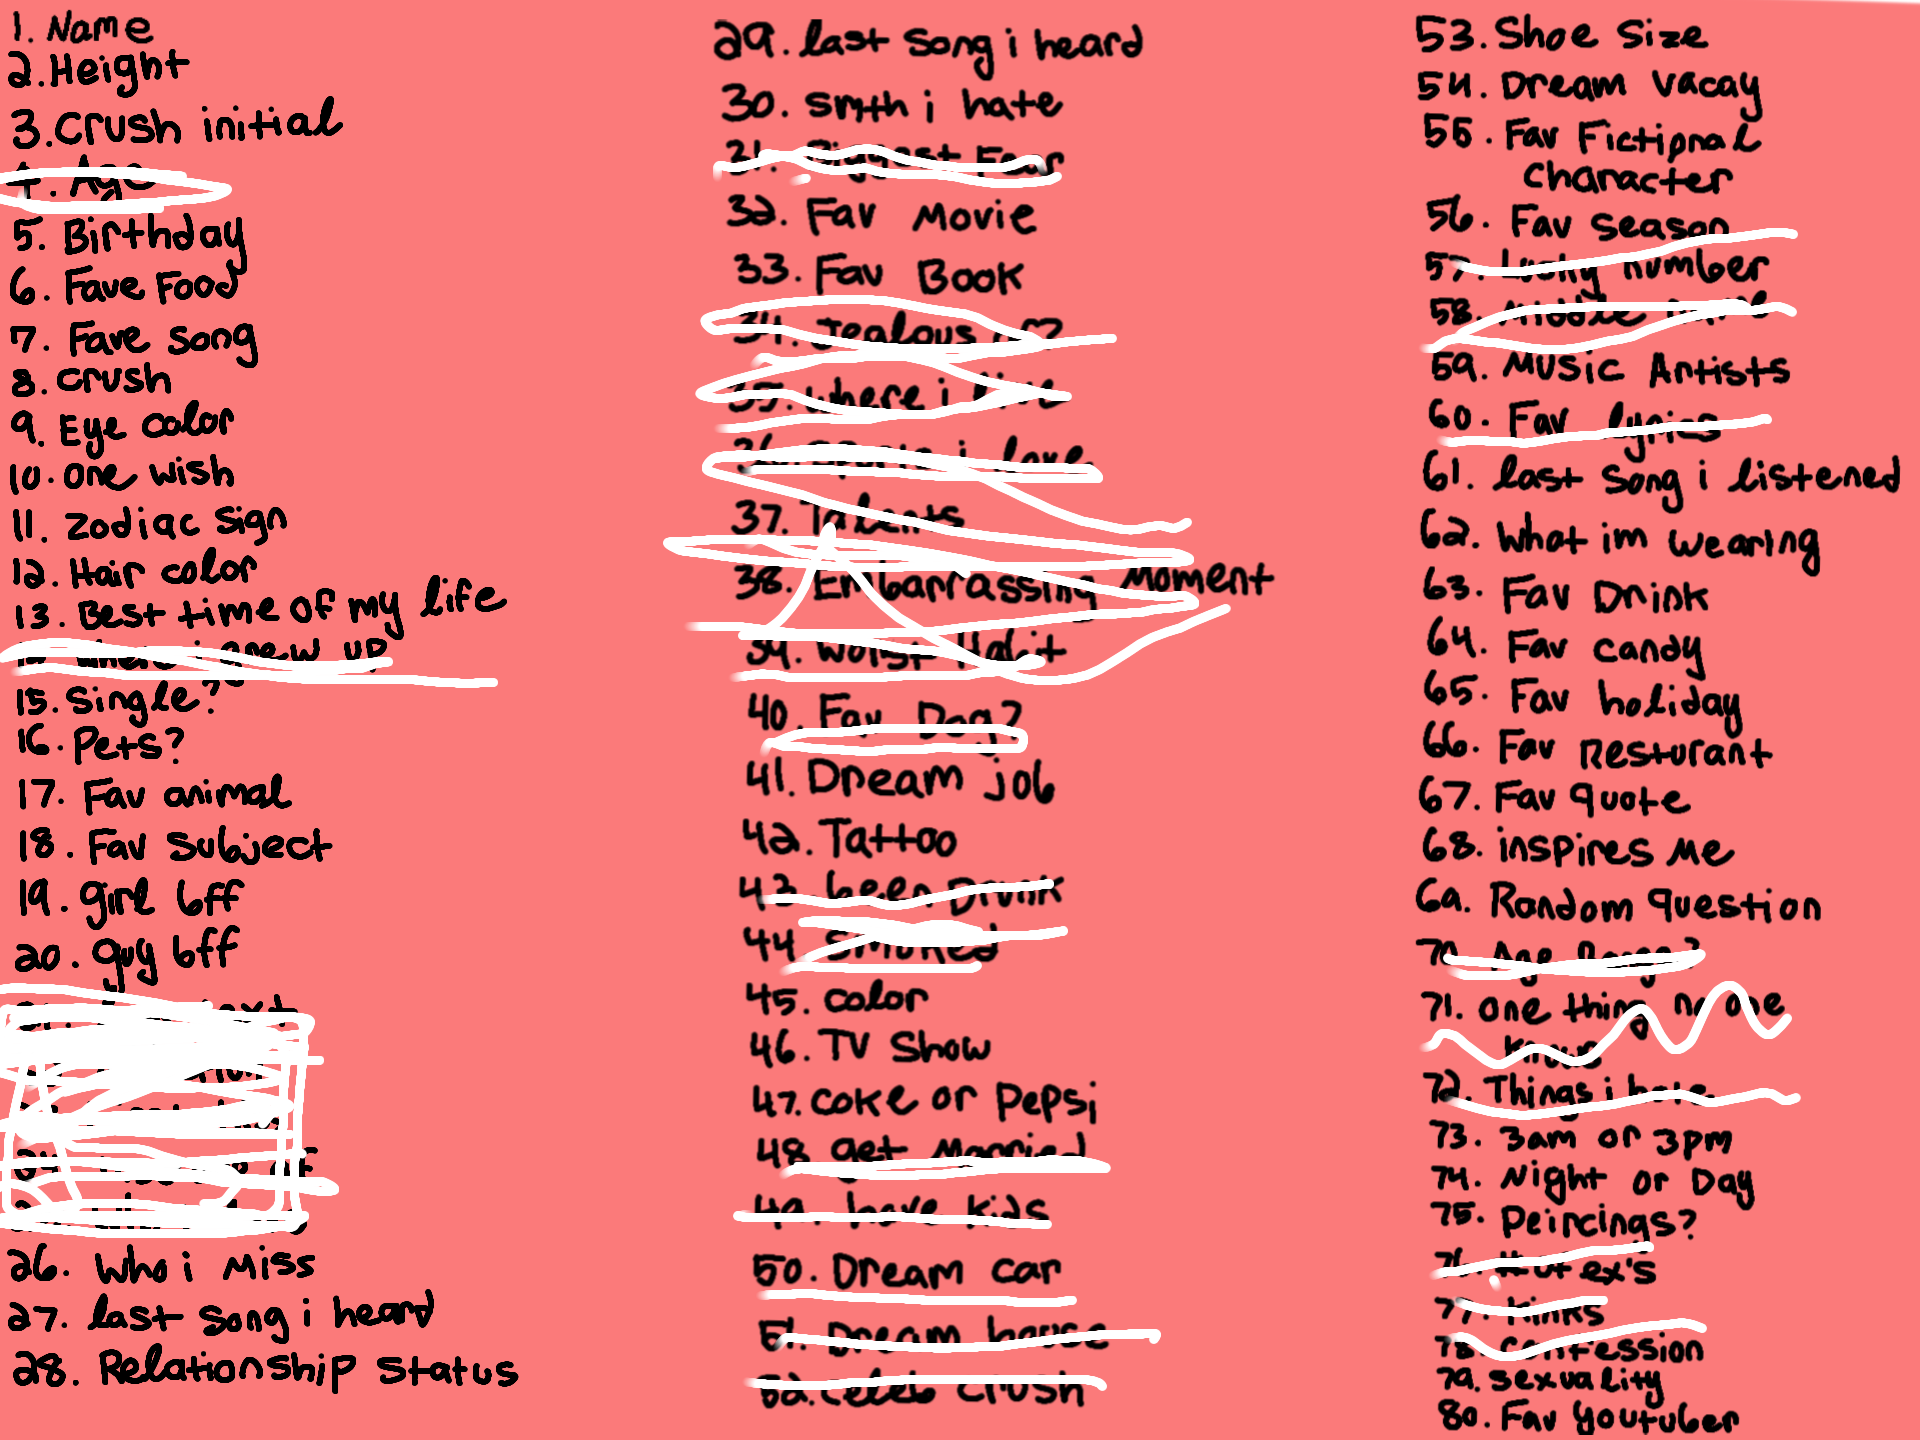 1. Name
2. Height
3. Crush initial
4. Age
5. Birthday
6. Fave Food
7. Fave song
8. crush
9. Eye color
10. one wish
11. zodiac sign
12. Hair color
13. Best time of my life
where i grew up
15. single?
16. Pets?
17. Fav animal
18. Fav subject
19. girl bff
20. guy bff
26. Who i miss
27. last song i heard
28. Relationship status
29. last song i heard
30. smth i hate
31. Biggest Fear
32. Fav Movie
33. Fav Book
34. Jealous of?
35. where i live
36. i love
37. Talents
38. Embarrassing moment
39. Worst Habit
40. Fav Dog?
41. Dream job
42. Tattoo
43. been Drunk
44. smoked
45. color
46. TV Show
47. coke or Pepsi
48. get married
49. have kids
50. Dream car
51. Dream house
52. celeb crush
53. Shoe Size
54. Dream vacay
55. Fav Fictional
character
56. Fav season
57. Lucky number
58. Middle name
59. Music Artists
60. Fav lyrics
61. last song i listened
62. What im wearing
63. Fav Drink
64. Fav candy
65. Fav holiday
66. Fav Resturant
67. Fav quote
68. inspires me
69. Random question
70. Age Range?
71. one thing no one
knows
72. Things i hate
73. 3am or 3pm
74. Night or Day
75. Peircings?
76. ex's
77. kinks
78. confession
79. sexuality
80. Fav youtuber